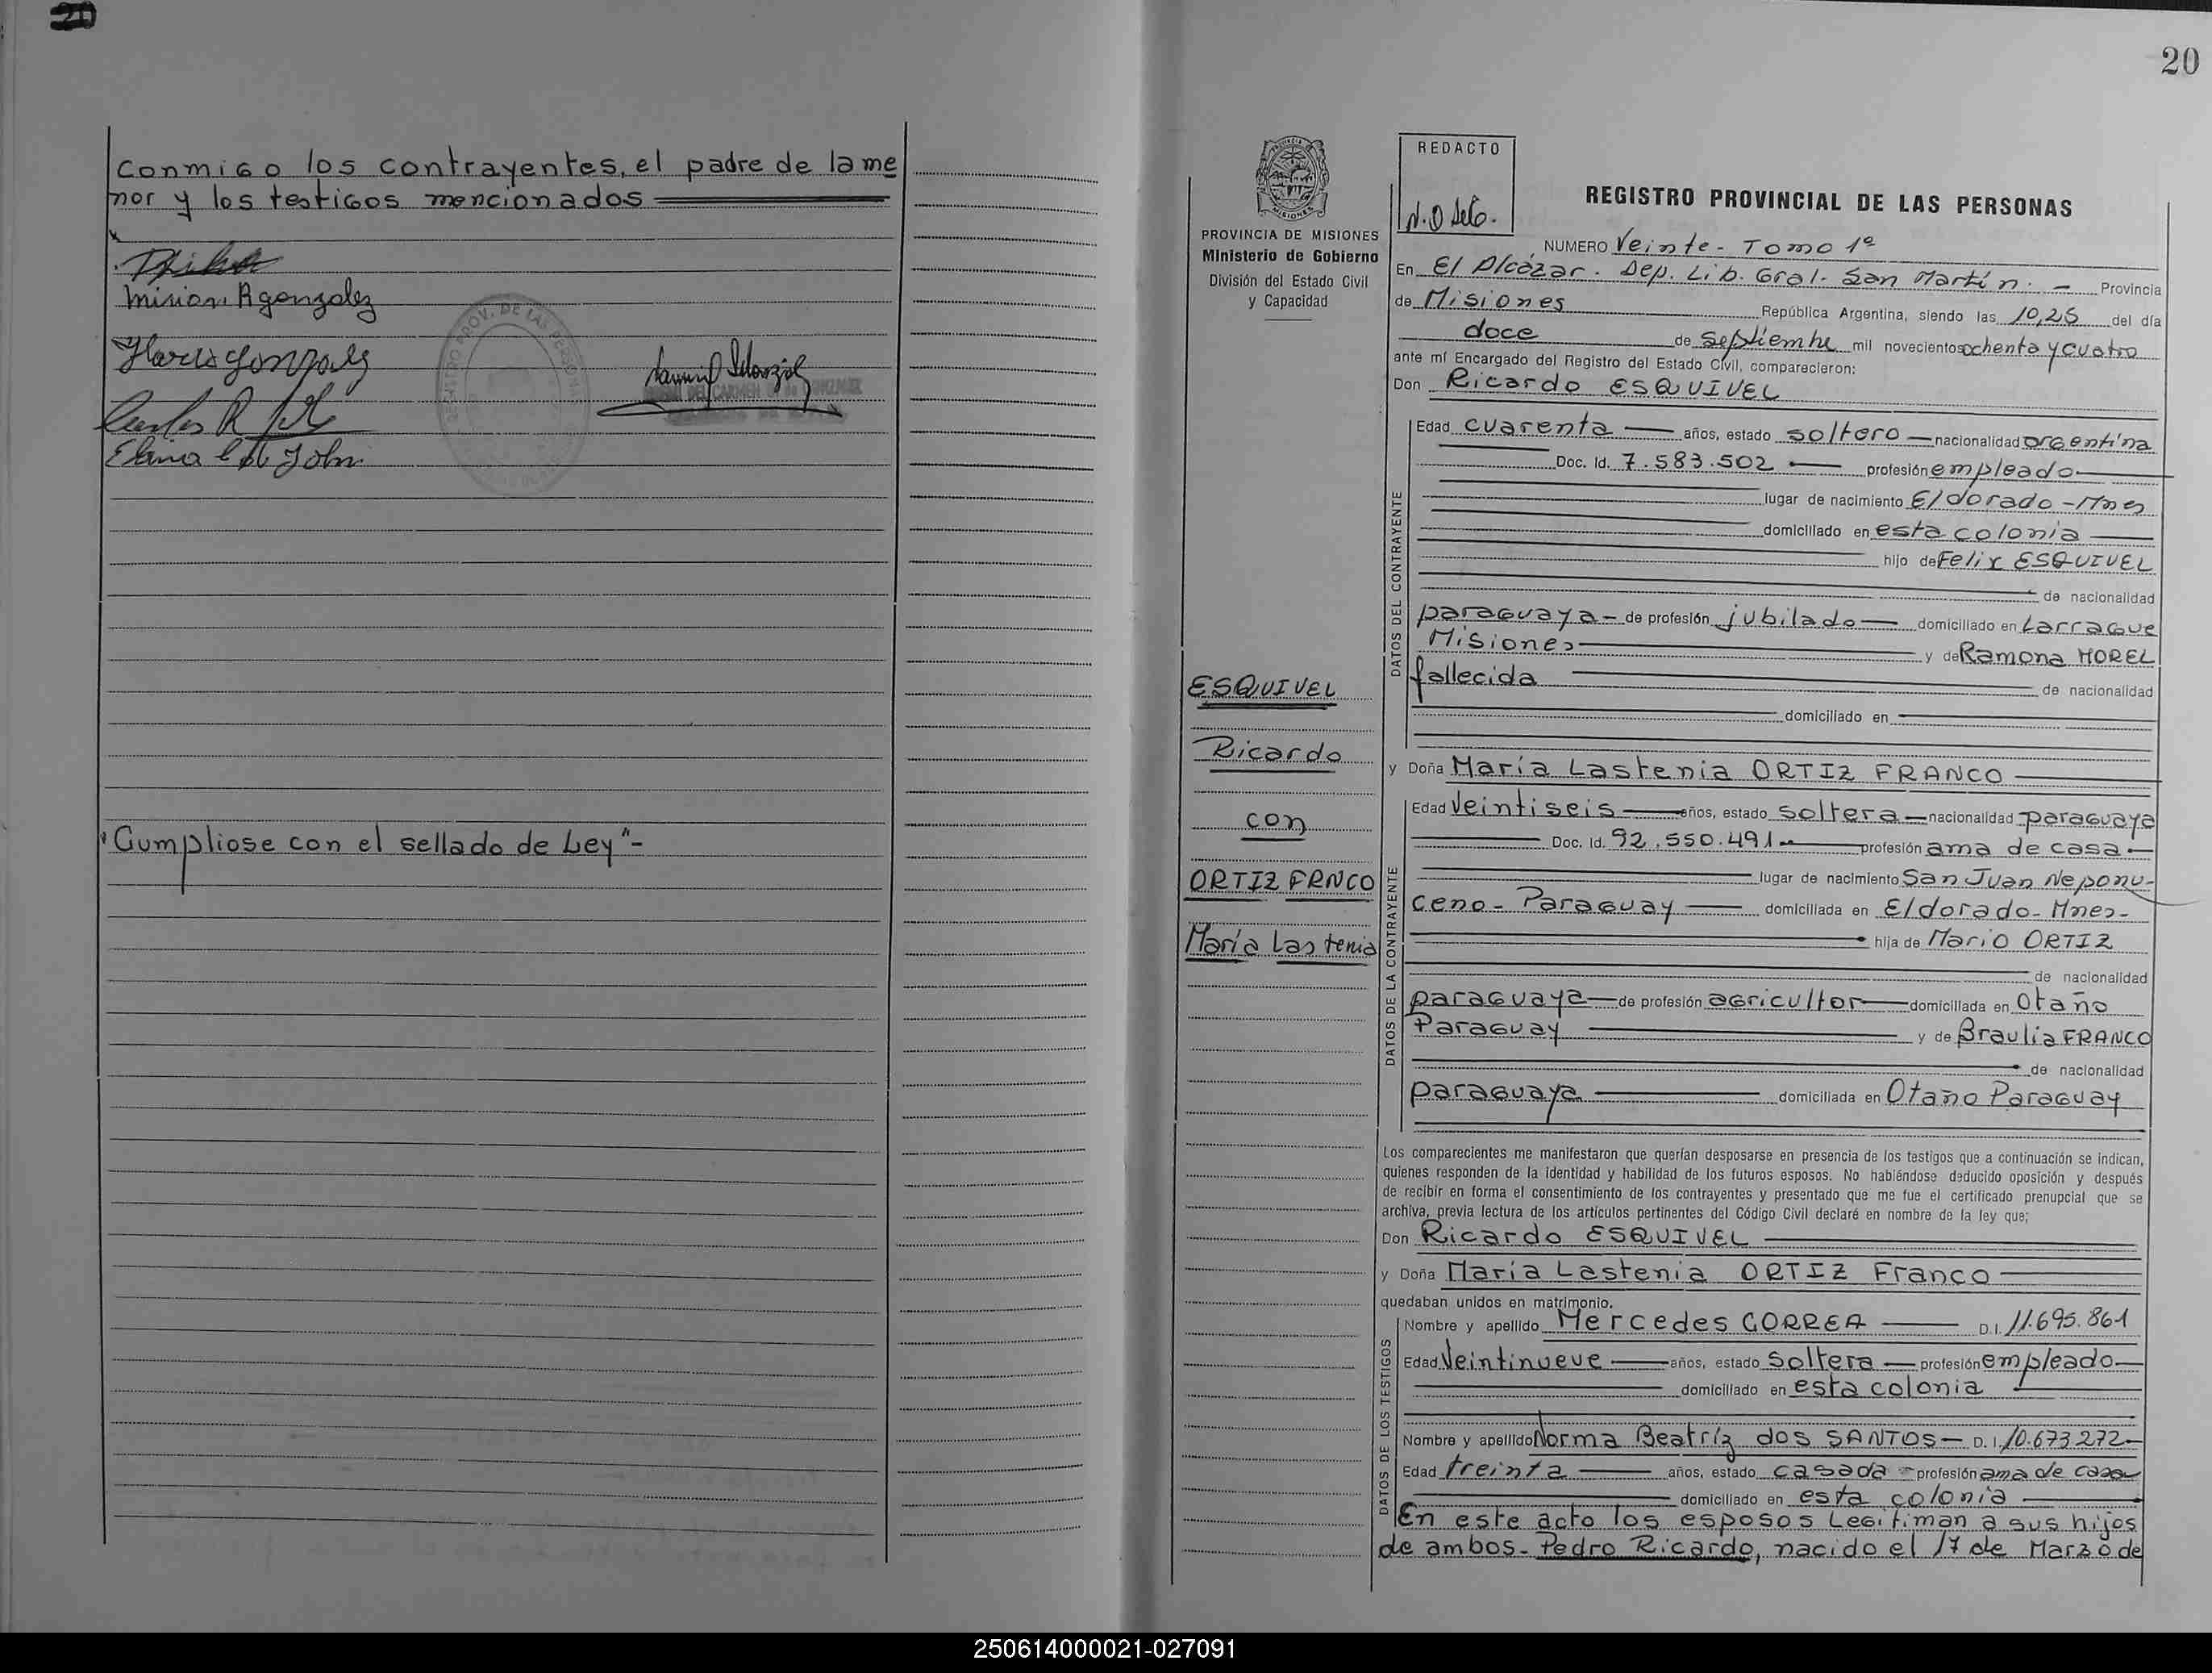 conmigo los contrayentes, el padre de la me
nor y los testigos mencionados
Mirian A gonzalez
"Cumpliose con el sellado de Ley"-
20
PROVINCIA DE MISIONES
Ministerio de Gobierno
División del Estado Civil
y Capacidad
ESQUIVEL
Ricardo
con
ORTIZ FRNCO
María Lastenia
REDACTO
REGISTRO PROVINCIAL DE LAS PERSONAS
NUMERO Veinte- Tomo 1º
En El Alcázar. Dep. Lib. Gral. San Martín. - Provincia
de Misiones República Argentina, siendo las 10,25 del día
doce de Septiembre mil novecientos ochenta y cuatro
ante mí Encargado del Registro del Estado Civil, comparecieron:
Don Ricardo ESQUIVEL
DATOS DEL CONTRAYENTE
Edad cuarenta años, estado soltero nacionalidad argentina
Doc. Id. 7.583.502 profesión empleado
lugar de nacimiento Eldorado-Mnes
domiciliado en esta colonia
hijo de Felix ESQUIVEL
de nacionalidad
paraguaya- de profesión jubilado domiciliado en Larrague
Misiones y de Ramona MOREL
fallecida de nacionalidad
domiciliado en
y Doña María Lastenia ORTIZ FRANCO
DATOS DE LA CONTRAYENTE
Edad Veintiseis años, estado soltera nacionalidad paraguaya
Doc. Id. 92.550.491 profesión ama de casa
lugar de nacimiento San Juan Neponu-
ceno- Paraguay domiciliada en Eldorado- Mnes-
hija de Mario ORTIZ
de nacionalidad
paraguaya de profesión agricultor domiciliada en Otaño
Paraguay y de Braulia FRANCO
de nacionalidad
paraguaya domiciliada en Otaño Paraguay
Los comparecientes me manifestaron que querían desposarse en presencia de los testigos que a continuación se indican,
quienes responden de la identidad y habilidad de los futuros esposos. No habiéndose deducido oposición y después
de recibir en forma el consentimiento de los contrayentes y presentado que me fue el certificado prenupcial que se
archiva, previa lectura de los artículos pertinentes del Código Civil declaré en nombre de la ley que;
Don Ricardo ESQUIVEL
y Doña María Lastenia ORTIZ Franco
quedaban unidos en matrimonio.
DATOS DE LOS TESTIGOS
Nombre y apellido Mercedes CORREA D.I. 11.695.861
Edad Veintinueve años, estado Soltera profesión empleado
domiciliado en esta colonia
Nombre y apellido Norma Beatríz dos SANTOS- D.I. 10.673.272
Edad treinta años, estado casada profesión ama de casa
domiciliado en esta colonia
En este acto los esposos Legitiman a sus hijos
de ambos- Pedro Ricardo, nacido el 17 de Marzo de
250614000021-027091